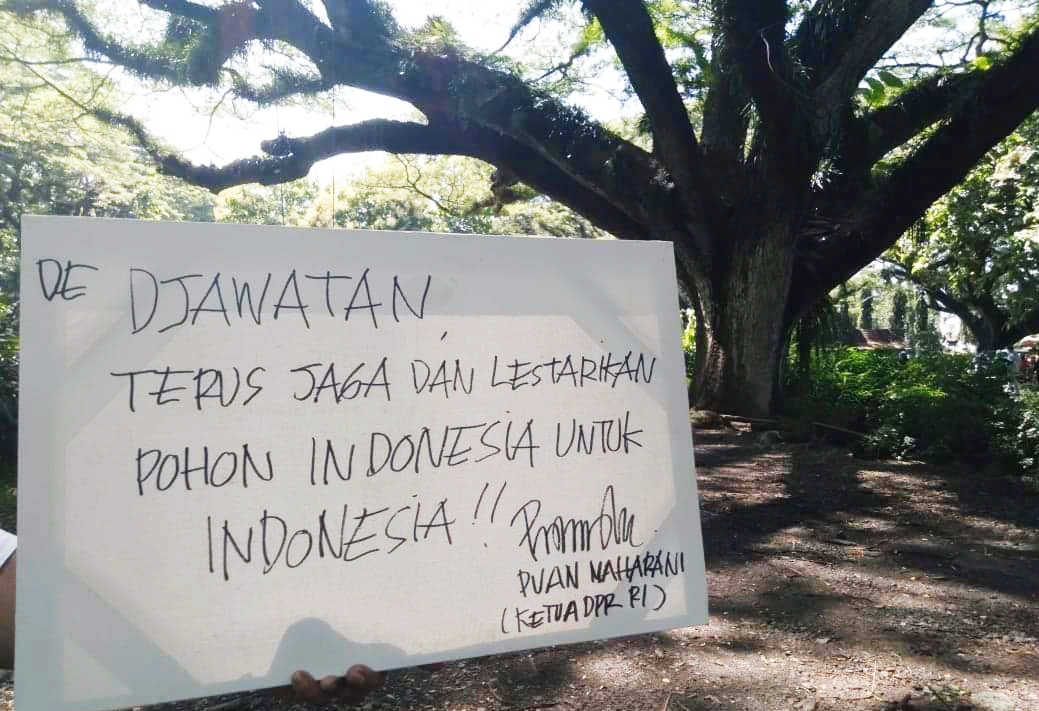 DE DJAWATAN,
TERUS JAGA DAN LESTARIKAN
POHON INDONESIA UNTUK
INDONESIA!!
PUAN MAHARANI
(KETUA DPR RI)